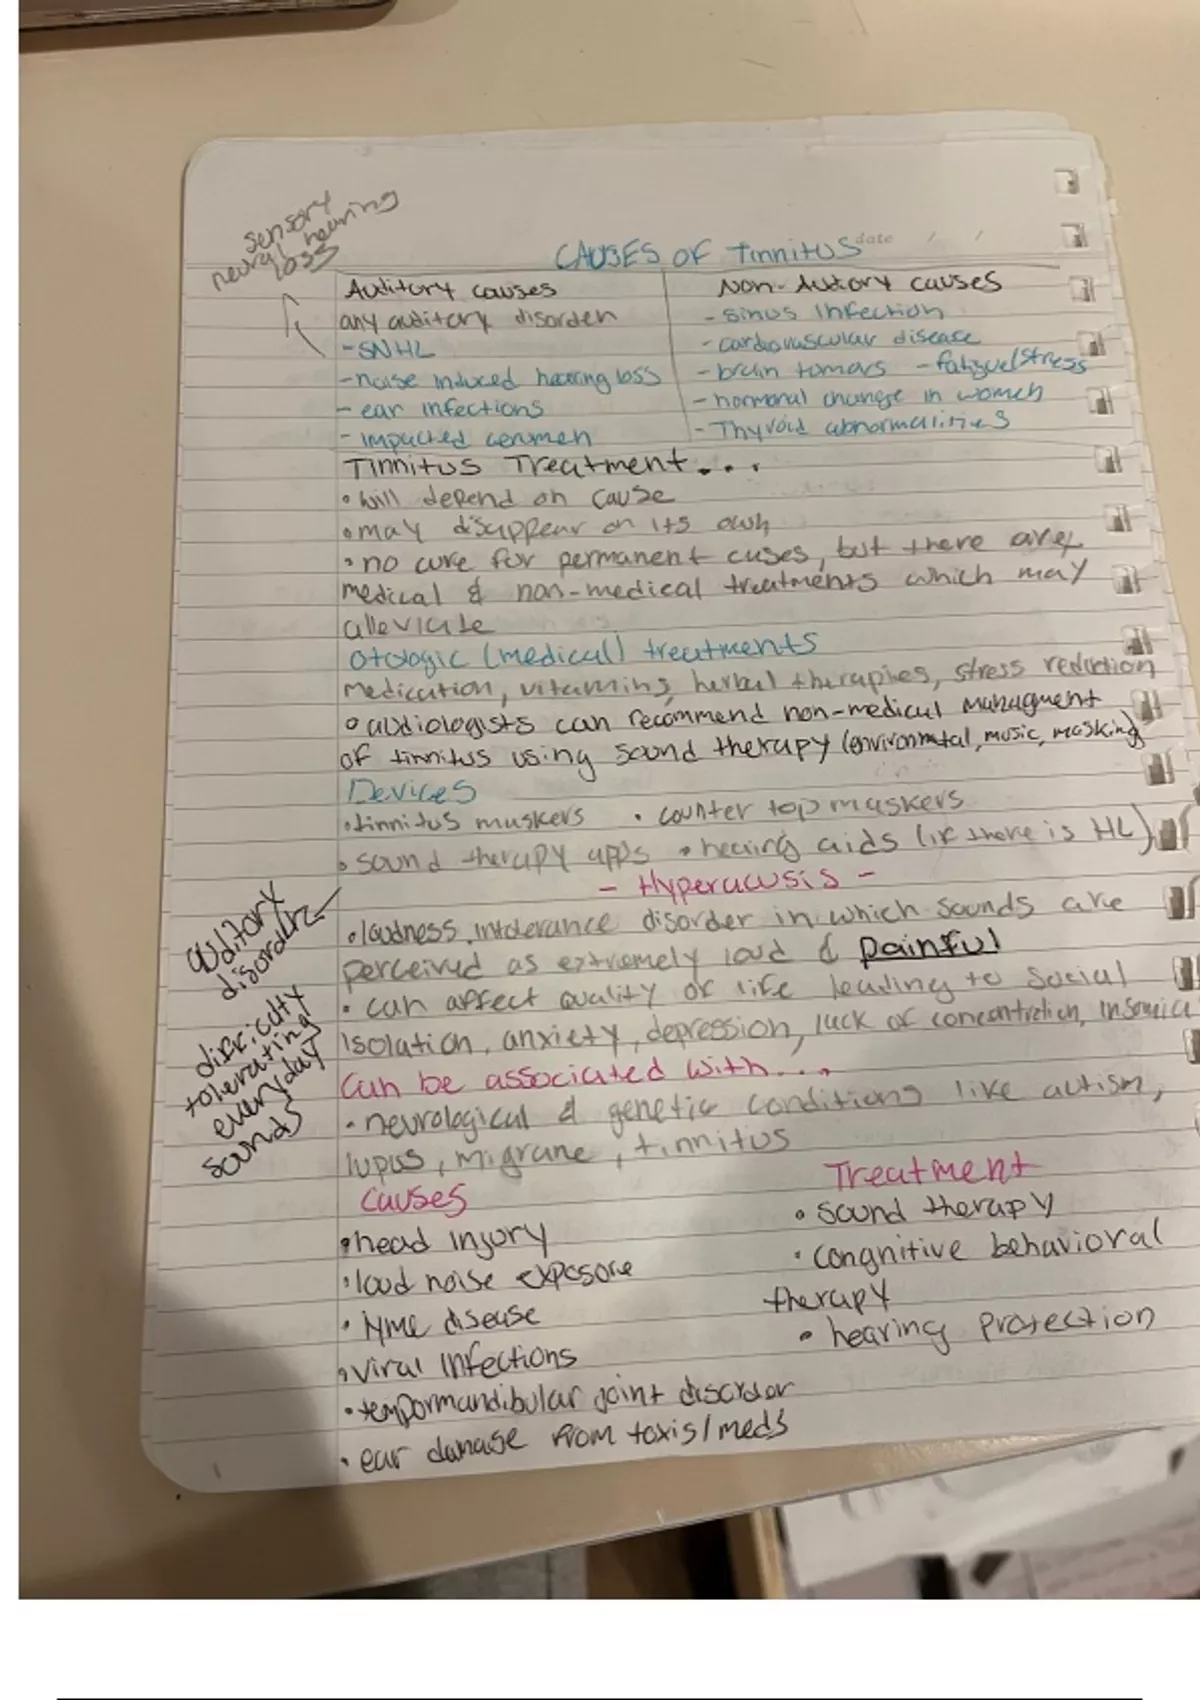 sensory
neural hearing
loss
CAUSES OF TinnitUS
date / /
Auditory causes
any auditory disorder
- SNHL
- noise induced hearing loss
- ear infections
- impacted cerumen
Non-Auditory causes
- sinus infection
- cardiovascular disease
- brain tomors - fatigue/stress
- hormonal change in women
- Thyroid abnormalities
Tinnitus Treatment...
• will depend on cause
• may disappear on its own
• no cure for permanent cases, but there are
medical & non-medical treatments which may
alleviate
Otologic (medical) treatments
medication, vitamins, herbal therapies, stress reduction
• audiologists can recommend non-medical managment
of tinnitus using sound therapy (environmetal, music, masking)
Devices
• tinnitus maskers • counter top maskers
• sound therapy apps • hearing aids (if there is HL)
- Hyperacusis -
auditory
disorder
• loudness intolerance disorder in which sounds are
perceived as extremely loud & painful
• can affect quality of life leading to social
isolation, anxiety, depression, lack of concentration, insomnia
difficulty
tolerating
everyday
sounds
Can be associated with...
• neurological & genetic conditions like autism,
lupus, migrane, tinnitus
Causes
• head injury
• loud noise exposore
• lyme disease
• viral infections
• tempormandibular joint disorder
• ear damage from toxis/meds
Treatment
• sound therapy
• congnitive behavioral
therapy
• hearing protection